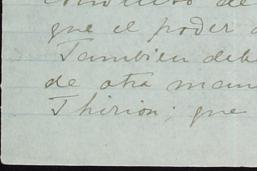 que el poder
Tambien deb
de otra man
Thirion; que